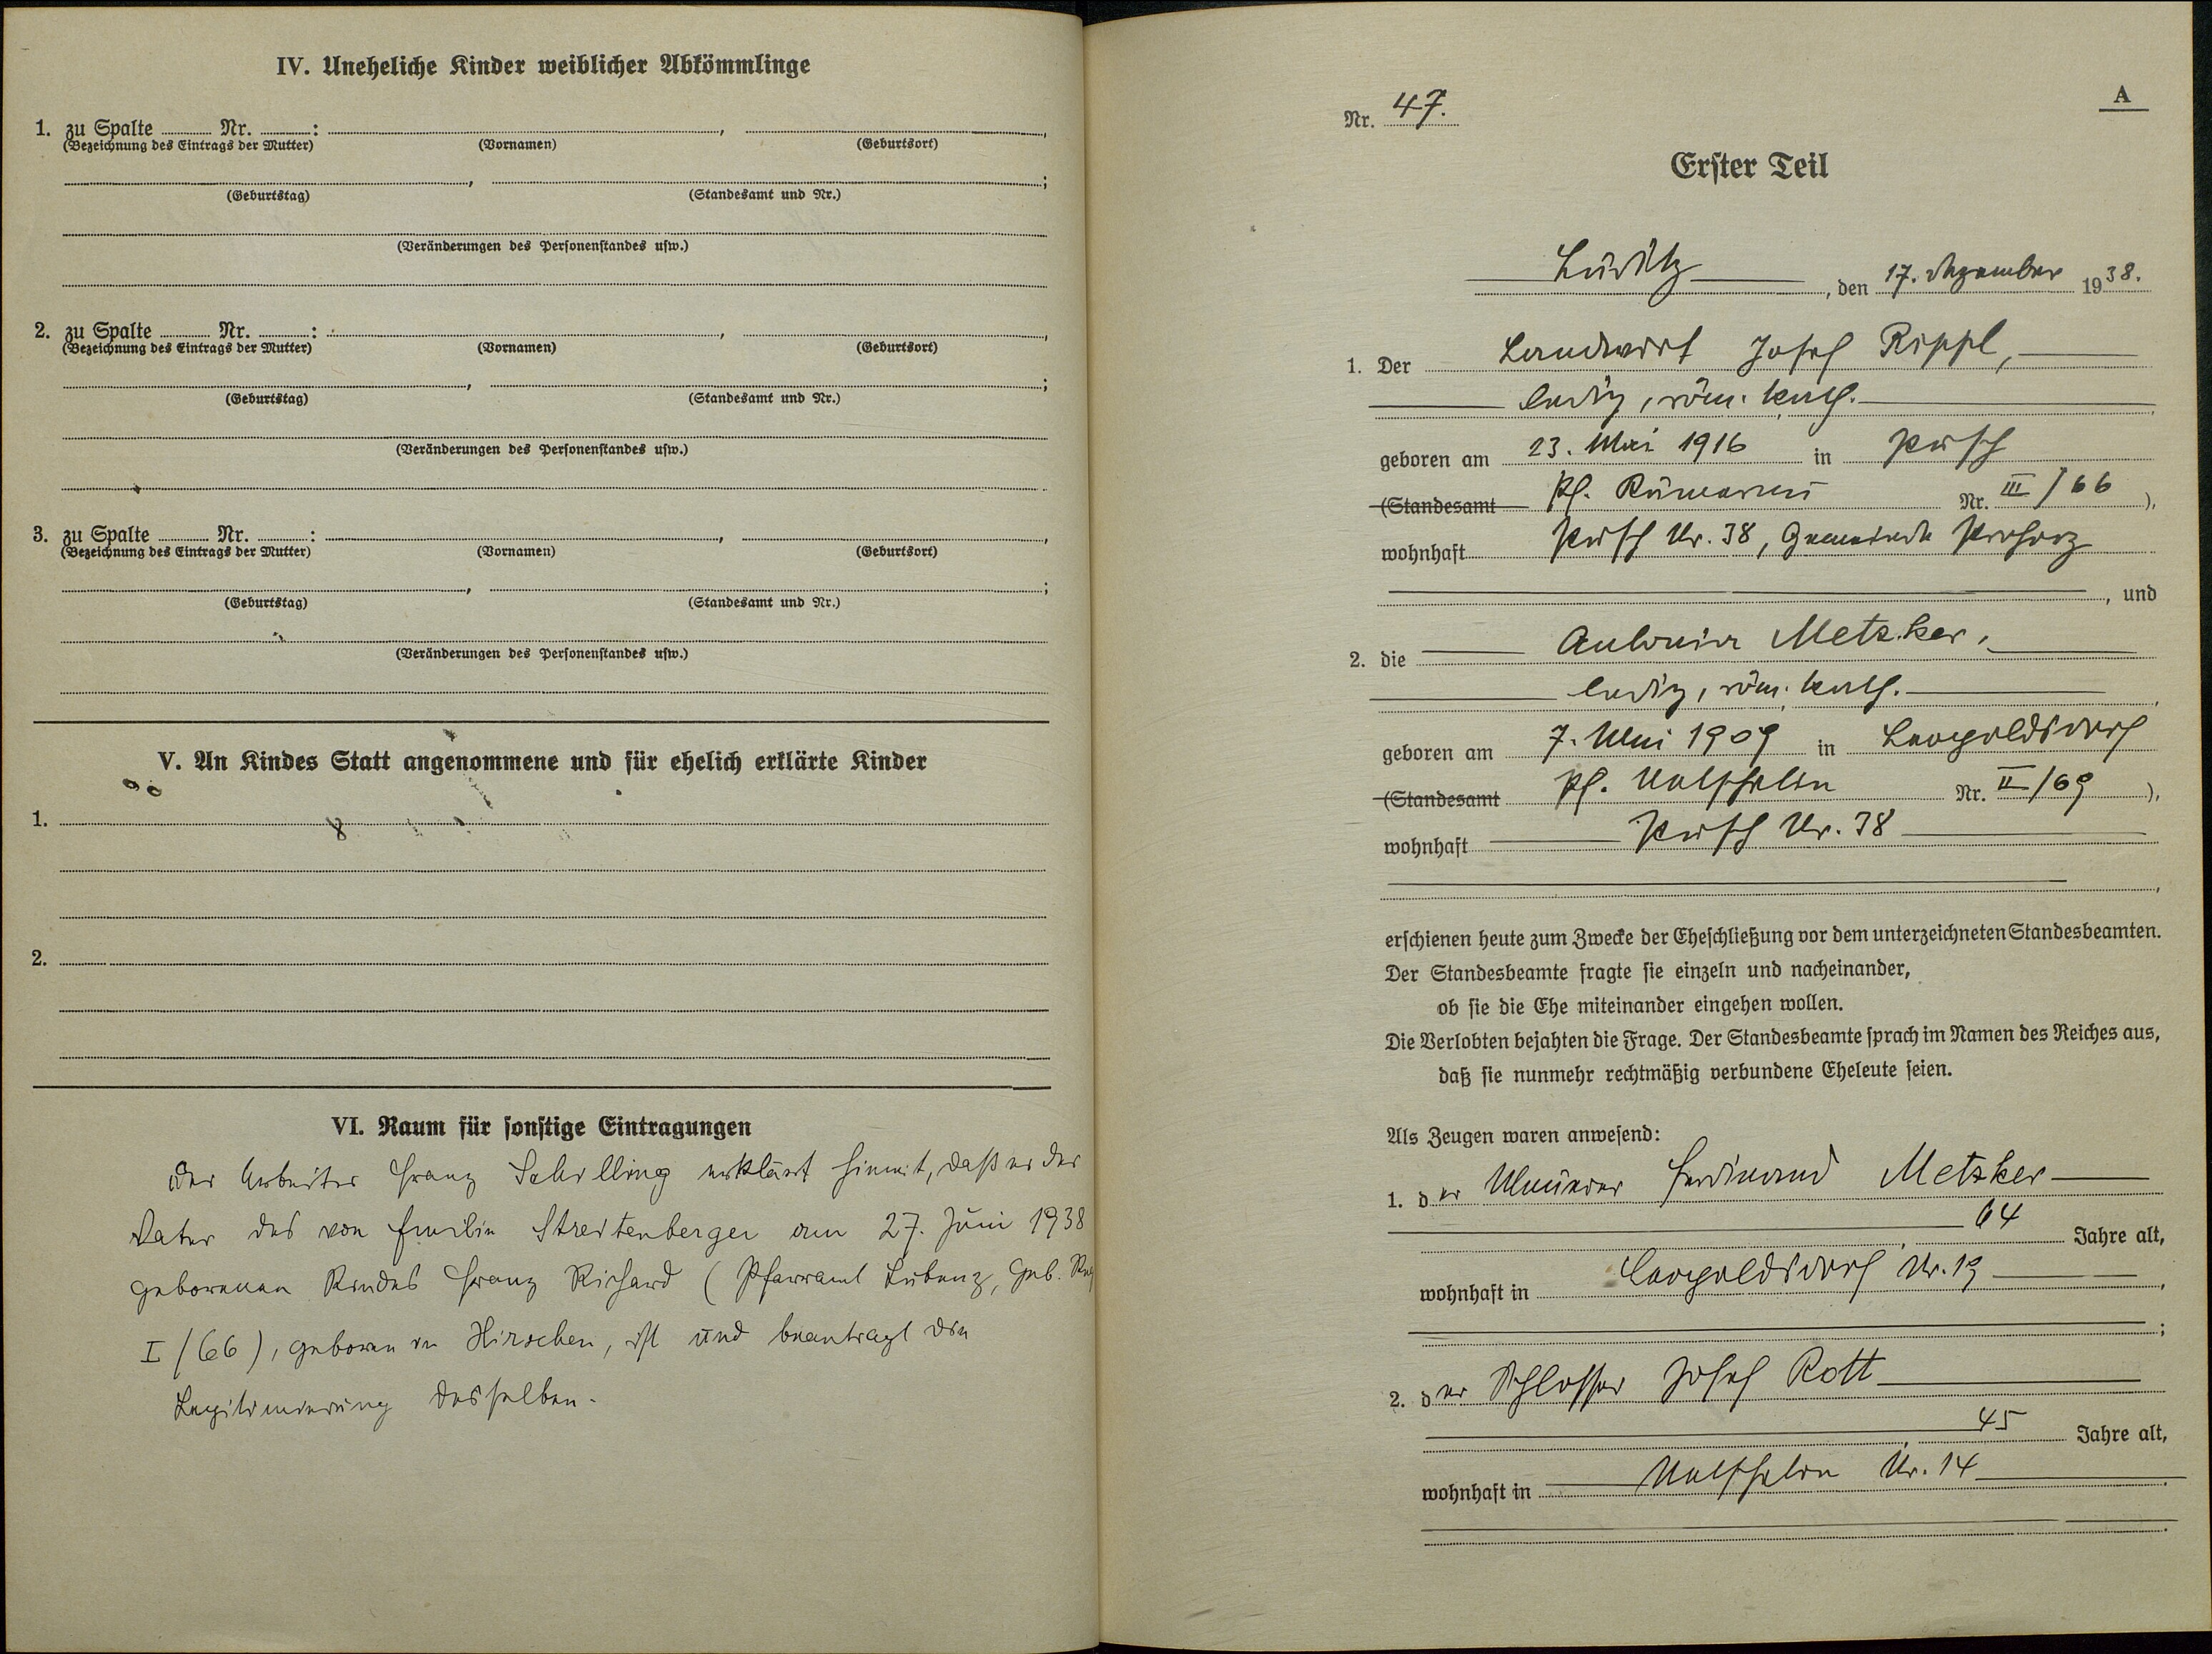 IV. Uneheliche Kinder weiblicher Abkömmlinge
1. zu Spalte ........ Nr. ........: ........, ........,
(Bezeichnung des Eintrags der Mutter) (Vornamen) (Geburtsort)
........, ........;
(Geburtstag) (Standesamt und Nr.)
(Veränderungen des Personenstandes usw.)
2. zu Spalte ........ Nr. ........: ........, ........,
(Bezeichnung des Eintrags der Mutter) (Vornamen) (Geburtsort)
........, ........;
(Geburtstag) (Standesamt und Nr.)
(Veränderungen des Personenstandes usw.)
3. zu Spalte ........ Nr. ........: ........, ........,
(Bezeichnung des Eintrags der Mutter) (Vornamen) (Geburtsort)
........, ........;
(Geburtstag) (Standesamt und Nr.)
(Veränderungen des Personenstandes usw.)
V. An Kindes Statt angenommene und für ehelich erklärte Kinder
1.
2.
VI. Raum für sonstige Eintragungen
Der Arbeiter Franz Schilling erklärt hiemit, daß er der
Vater des von Emilie Streitenberger am 27. Juni 1938
geborenen Kindes Franz Richard (Pfarramt Lubenz, Geb. Reg
I/66), geboren in Hirschen, ist und beantragt die
Legitimierung desselben.
A
Nr. 47.
Erster Teil
Luditz, den 17. Dezember 1938.
1. Der Landwirt Josef Rippl,
ledig, röm. kath.
geboren am 23. Mai 1916 in
(Standesamt Pf. Nr. III/66),
wohnhaft Nr. 38, Gemeinde Prohorz
, und
2. die Antonia Metzker,
ledig, röm. kath.
geboren am 7. Mai 1909 in Leopoldsdorf
(Standesamt Pf. Nr. II/69),
wohnhaft Nr. 38
erschienen heute zum Zwecke der Eheschließung vor dem unterzeichneten Standesbeamten.
Der Standesbeamte fragte sie einzeln und nacheinander,
ob sie die Ehe miteinander eingehen wollen.
Die Verlobten bejahten die Frage. Der Standesbeamte sprach im Namen des Reiches aus,
daß sie nunmehr rechtmäßig verbundene Eheleute seien.
Als Zeugen waren anwesend:
1. der Maurer Ferdinand Metzker
64 Jahre alt,
wohnhaft in Leopoldsdorf Nr. 19,
;
2. der Schlosser Josef Rott
, 45 Jahre alt,
wohnhaft in Nr. 14.